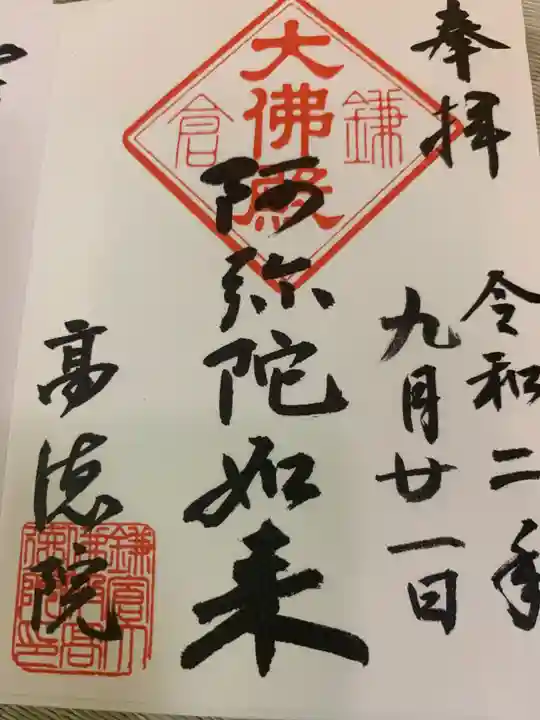 奉拝
令和二年
九月廿一日
鎌倉
大佛殿
阿弥陀如来
高徳院